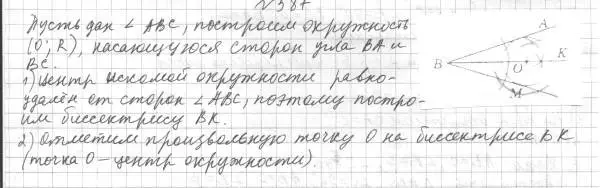 №387
Пусть дан ∠ABC, построим окружность
(O; R), касающуюся сторон угла BA и
BC.
1) Центр искомой окружности равно-
удалён от сторон ∠ABC, поэтому постро-
им биссектрису BK.
2) Отметим произвольную точку O на биссектрисе BK
(точка O – центр окружности).
A
B
O
K
M